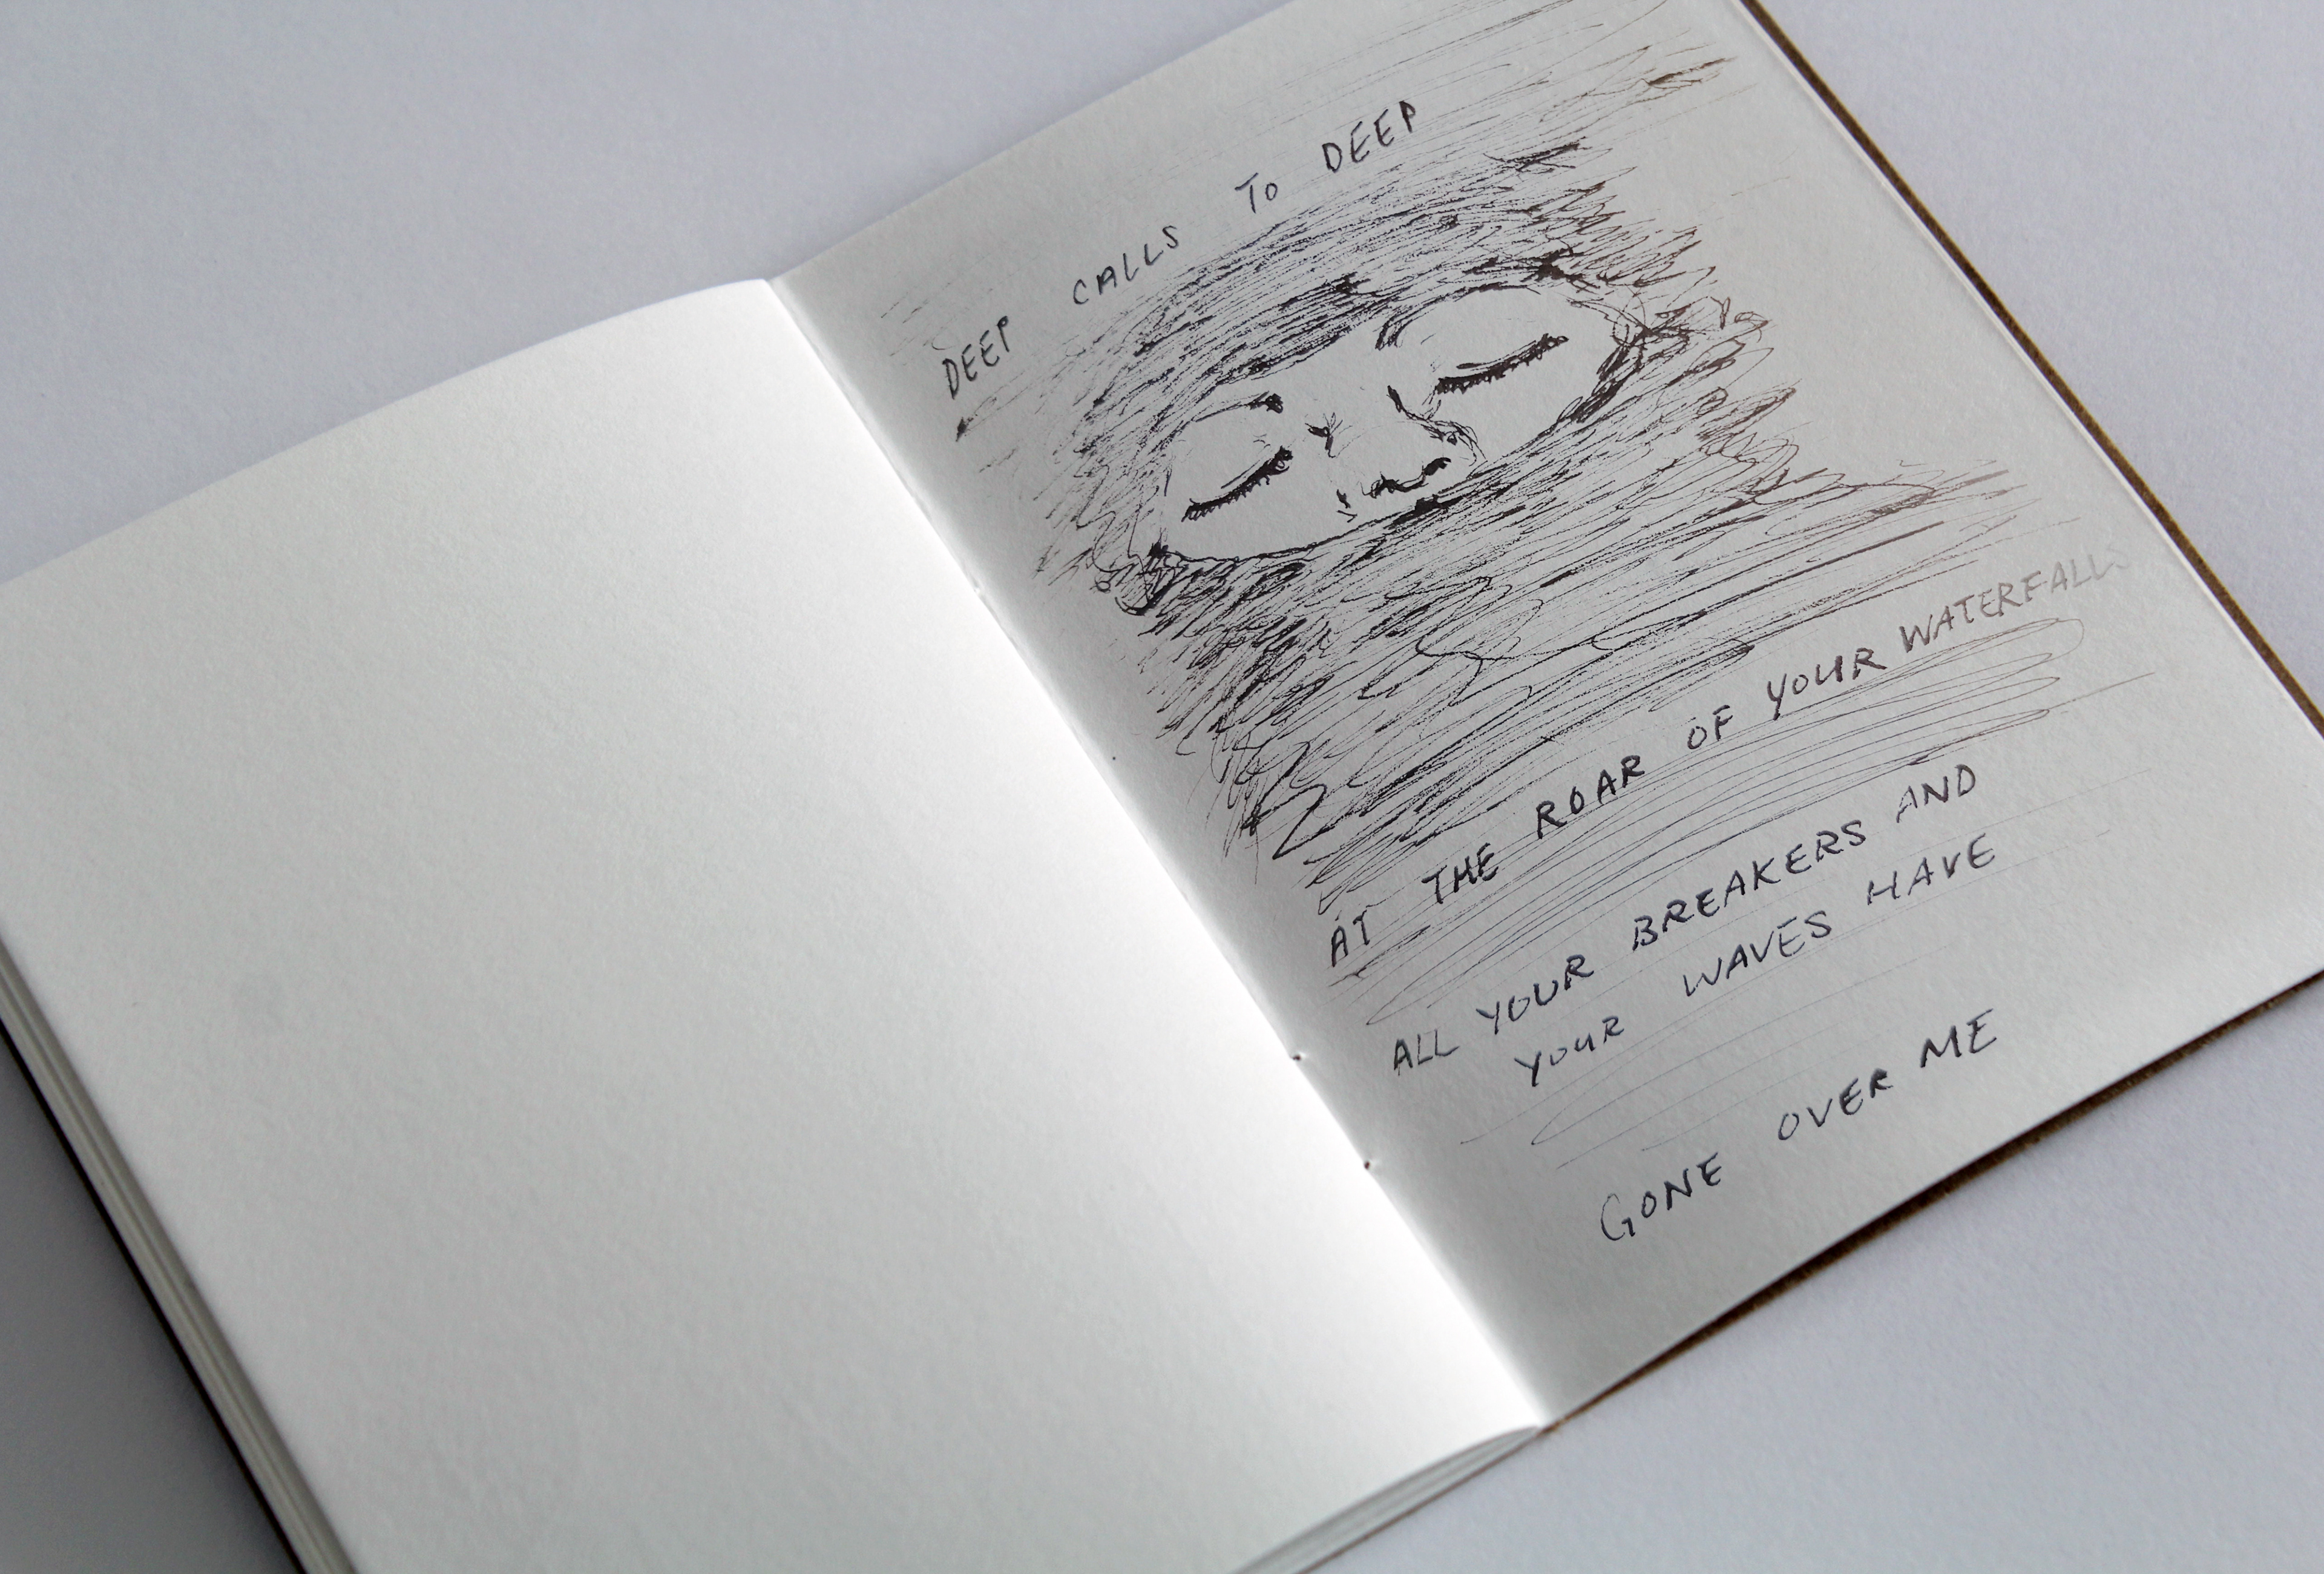 DEEP CALLS TO DEEP
AT THE ROAR OF YOUR WATERFALLS
ALL YOUR BREAKERS AND
YOUR WAVES HAVE
GONE OVER ME